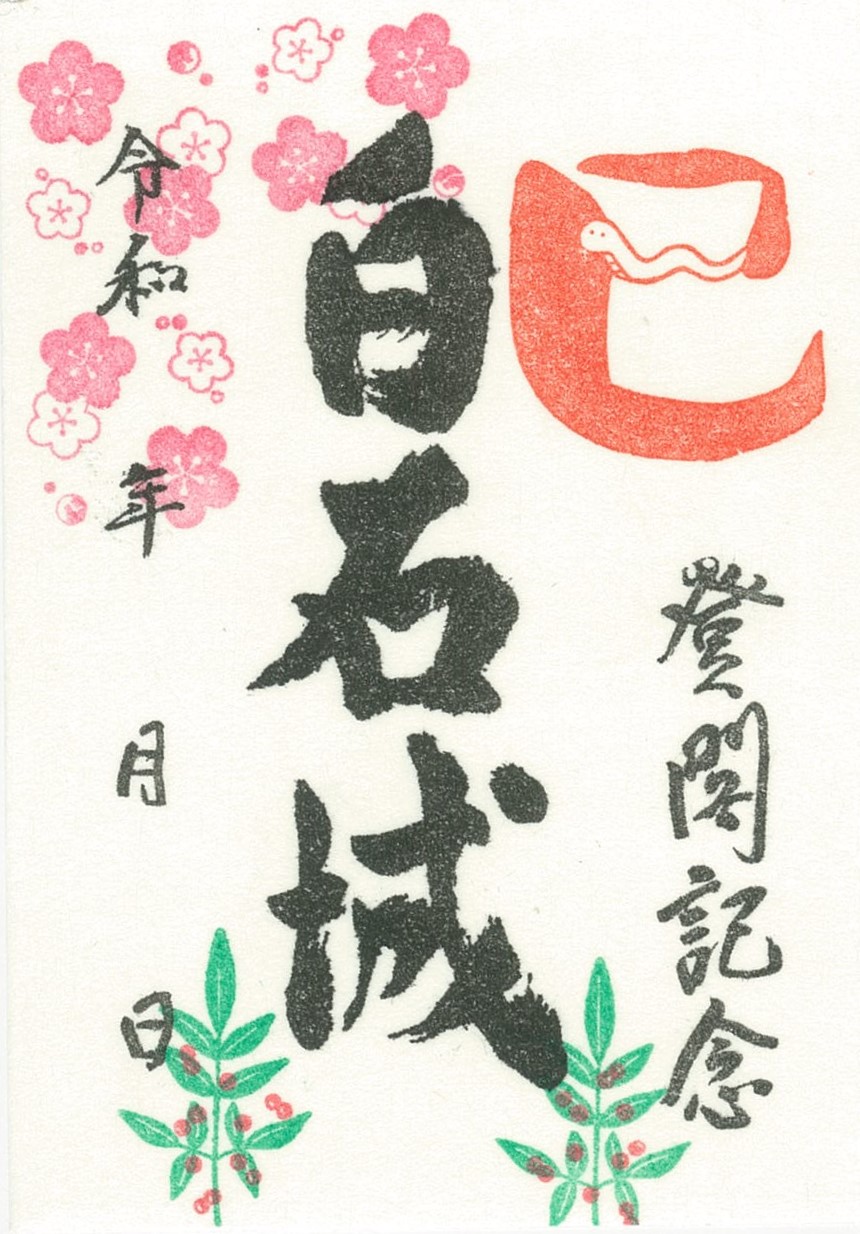 巳
登閣記念
白石城
令和 年 月 日